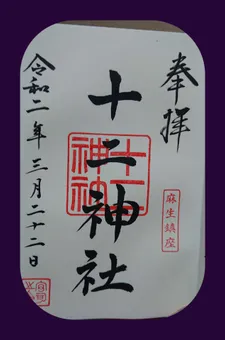 奉拝
麻生鎮座
十二神社
十二
神社
令和二年三月二十二日